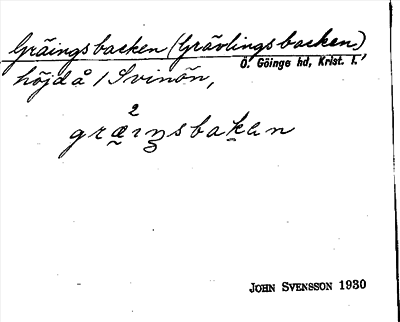 Gräingsbacken (Grävlingsbacken)
Ö. Göinge hd, Krist. l.
höjd å / Svinön,
2
græıŋsbakən
JOHN SVENSSON 1930